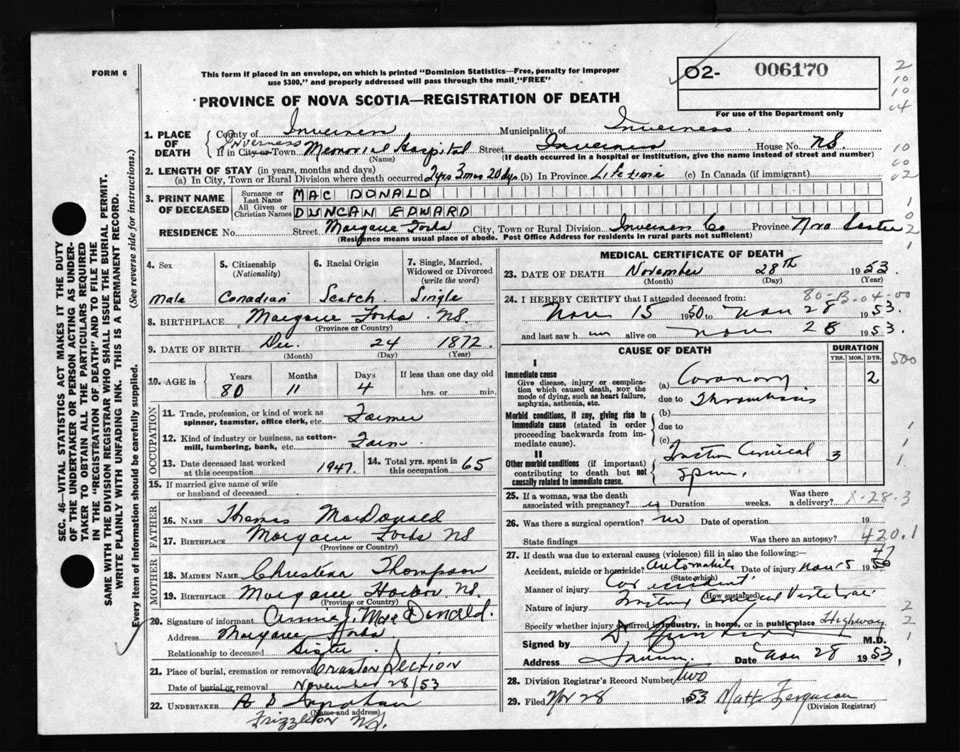 FORM 6
This form if placed in an envelope, on which is printed "Dominion Statistics—Free, penalty for improper
use $300," and properly addressed will pass through the mail "FREE"
02- 006170
For use of the Department only
PROVINCE OF NOVA SCOTIA—REGISTRATION OF DEATH
SEC. 46—VITAL STATISTICS ACT MAKES IT THE DUTY
OF THE UNDERTAKER OR PERSON ACTING AS UNDER-
TAKER TO OBTAIN ALL THE PARTICULARS REQUIRED
IN THE "REGISTRATION OF DEATH" AND TO FILE THE
SAME WITH THE DIVISION REGISTRAR WHO SHALL ISSUE THE BURIAL PERMIT.
WRITE PLAINLY WITH UNFADING INK. THIS IS A PERMANENT RECORD.
Every item of information should be carefully supplied. (See reverse side for instructions.)
1. PLACE OF DEATH County of Inverness Municipality of Inverness
Inverness
If in City or Town Memorial Hospital Street Inverness House No. NS.
(Name) (If death occurred in a hospital or institution, give the name instead of street and number)
2. LENGTH OF STAY (in years, months and days)
(a) In City, Town or Rural Division where death occurred 2 yrs 3 mos 20 dys (b) In Province Life time (c) In Canada (if immigrant)
3. PRINT NAME OF DECEASED Surname or Last Name MAC DONALD
All Given or Christian Names DUNCAN EDWARD
RESIDENCE No. Street Margaree Forks City, Town or Rural Division Inverness Co Province Nova Scotia
(Residence means usual place of abode. Post Office Address for residents in rural parts not sufficient)
4. Sex Male
5. Citizenship (Nationality) Canadian
6. Racial Origin Scotch
7. Single, Married, Widowed or Divorced (write the word) Single
8. BIRTHPLACE Margaree Forks NS.
(Province or Country)
9. DATE OF BIRTH Dec. 24 1872
(Month) (Day) (Year)
10. AGE in Years 80 Months 11 Days 4 If less than one day old hrs. or min.
OCCUPATION
11. Trade, profession, or kind of work as spinner, teamster, office clerk, etc. Farmer
12. Kind of industry or business, as cotton-mill, lumbering, bank, etc. Farm
13. Date deceased last worked at this occupation 1947. 14. Total yrs. spent in this occupation 65
15. If married give name of wife or husband of deceased
FATHER
16. NAME Thomas MacDonald
17. BIRTHPLACE Margaree Forks NS
(Province or Country)
MOTHER
18. MAIDEN NAME Christena Thompson
19. BIRTHPLACE Margaree Harbor NS.
(Province or Country)
20. Signature of informant Annie J. MacDonald.
Address Margaree Forks
Relationship to deceased Sister
21. Place of burial, cremation or removal Cranton Section
Date of burial or removal November 28/53
22. UNDERTAKER A D
(Name and address)
Frizzleton NS.
MEDICAL CERTIFICATE OF DEATH
23. DATE OF DEATH November 28th 1953.
(Month) (Day)
80-B-04-00
24. I HEREBY CERTIFY that I attended deceased from:
Nov 15 1950 to Nov 28 1953.
and last saw him alive on Nov 28 1953.
CAUSE OF DEATH DURATION
YRS. MOS. DYS.
I
Immediate cause
Give disease, injury or complication which caused death, not the mode of dying, such as heart failure, asphyxia, asthenia, etc.
(a) Coronary 2
due to Thrombosis
Morbid conditions, if any, giving rise to immediate cause (stated in order proceeding backwards from immediate cause).
(b)
due to
(c)
II
Other morbid conditions (if important) contributing to death but not causally related to immediate cause.
Fracture Cervical 3
Spine.
25. If a woman, was the death associated with pregnancy? Duration weeks. Was there a delivery?
X-28-3
26. Was there a surgical operation? no Date of operation 19
State findings Was there an autopsy?
420.1
27. If death was due to external causes (violence) fill in also the following:—
Accident, suicide or homicide? Automobile Date of injury Nov 5 1950
(State which)
Manner of injury Car accident
(How sustained)
Nature of injury Fracture Cervical Vertebrae
Specify whether injury occurred in industry, in home, or in public place Highway
Signed by M.D.
Address Date Nov 28 1953
28. Division Registrar's Record Number two
29. Filed Nov 28 1953 Matt Ferguson
(Division Registrar)